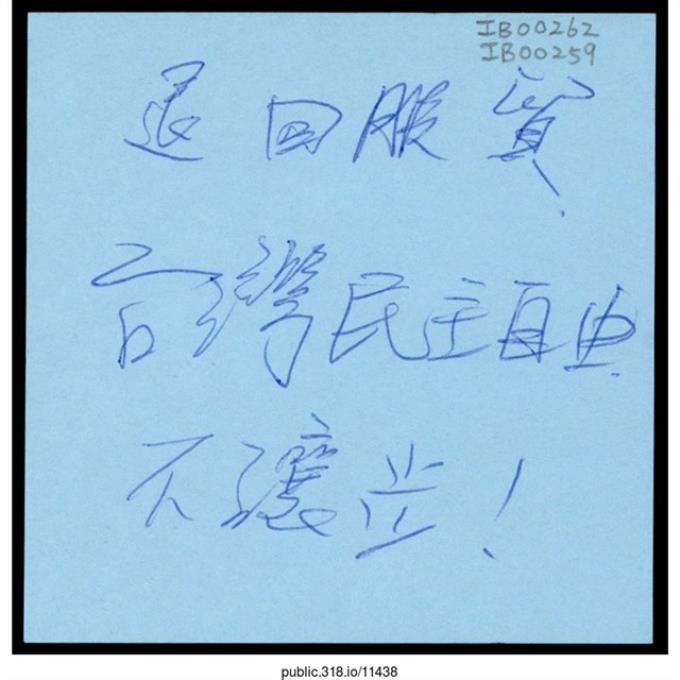 IB00262
IB00259
退回服貿
台灣民主自由
不讓步!
public.318.io/11438